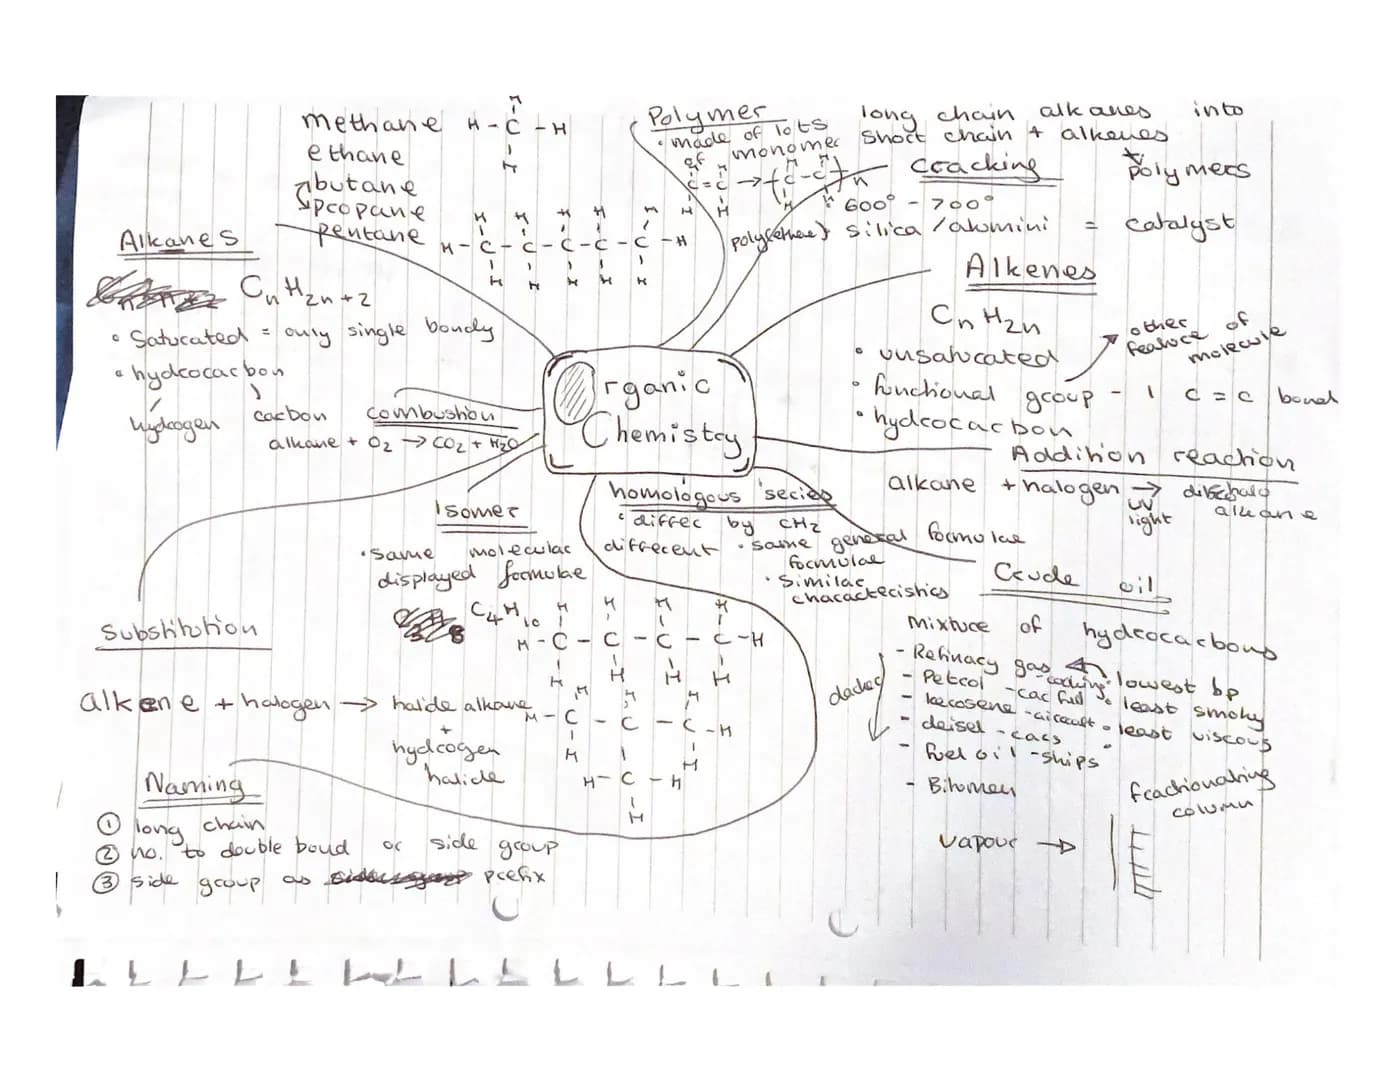 methane
ethane
butane
propane
pentane
H - C - H
H
H
H H H H H
H - C - C - C - C - C - H
H H H H H
Alkanes
CnH2n+2
• Saturated = only single bonds
• hydrocarbon
hydrogen carbon
combustion
alkane + O2 → CO2 + H2O
Polymer
• made of lots
of monomer
H H H H
C = C → ( C - C )n
H H H H
poly(ethene)
long chain alkanes into
short chain + alkenes
Cracking
polymers
600° - 700°
silica / alumini = catalyst
Alkenes
CnH2n
• unsaturated
• functional group - 1 C = C bond
other feature of
molecule
• hydrocarbon
Organic
Chemistry
Addition reaction
alkane + halogen →
UV
light
alkane
homologous series
• differ by CH2
• same general formulae
formulae
• similar
characteristics
Isomer
• same molecular different
displayed formulae
C4H10
H H H H
H - C - C - C - C - H
H H H H
H H H
H - C - C - C - H
H H
H - C - H
H
Substitution
alkene + halogen → halide alkane
+
hydrogen
halide
Crude oil
Mixture of hydrocarbons
- Refinary gas - cooking • lowest bp
- Petrol - car fuel • least smoky
- kerosene - aircraft • least viscous
- deisel - cars
- fuel oil - ships
- Bitumen
fractionating
column
vapour →
Naming
① long chain
② no. to double bond or side group
③ side group as prefix